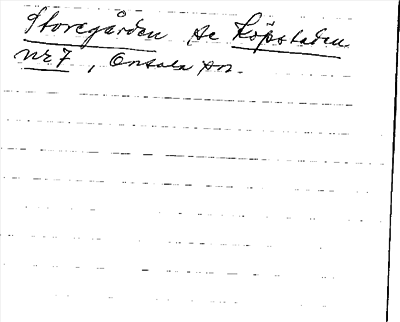 Storegården se Köpstaden
nr 7, Onsala sn.